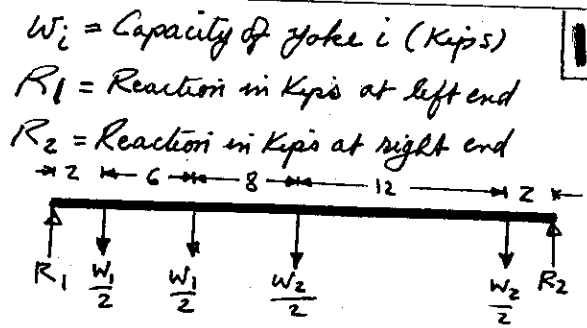 Wi = Capacity of yoke i (Kips)
R1 = Reaction in Kips at left end
R2 = Reaction in Kips at right end
2 6 8 12 2
R1 W1/2 W1/2 W2/2 W2/2 R2